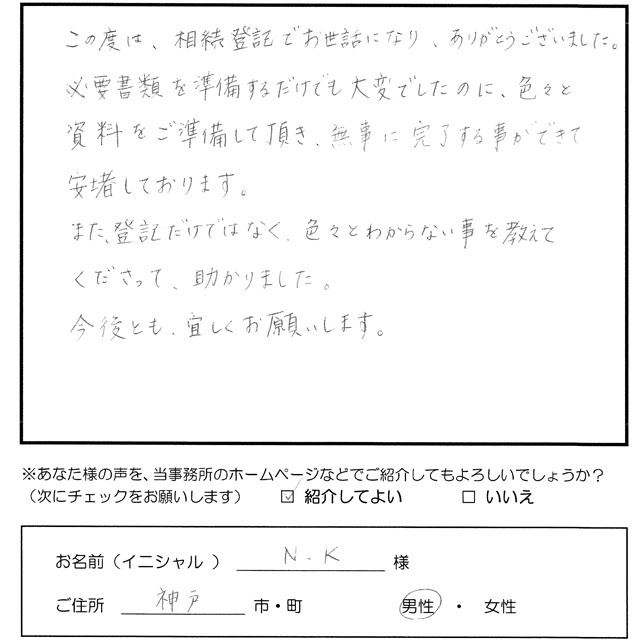 この度は、相続登記でお世話になり、ありがとうございました。
必要書類を準備するだけでも大変でしたのに、色々と
資料をご準備して頂き、無事に完了する事ができて
安堵しております。
また、登記だけではなく、色々とわからない事を教えて
くださって、助かりました。
今後とも、宜しくお願いします。
※あなた様の声を、当事務所のホームページなどでご紹介してもよろしいでしょうか?
(次にチェックをお願いします) ☑ 紹介してよい □ いいえ
お名前(イニシャル ) N.K 様
ご住所 神戸 市・町 男性 ・ 女性